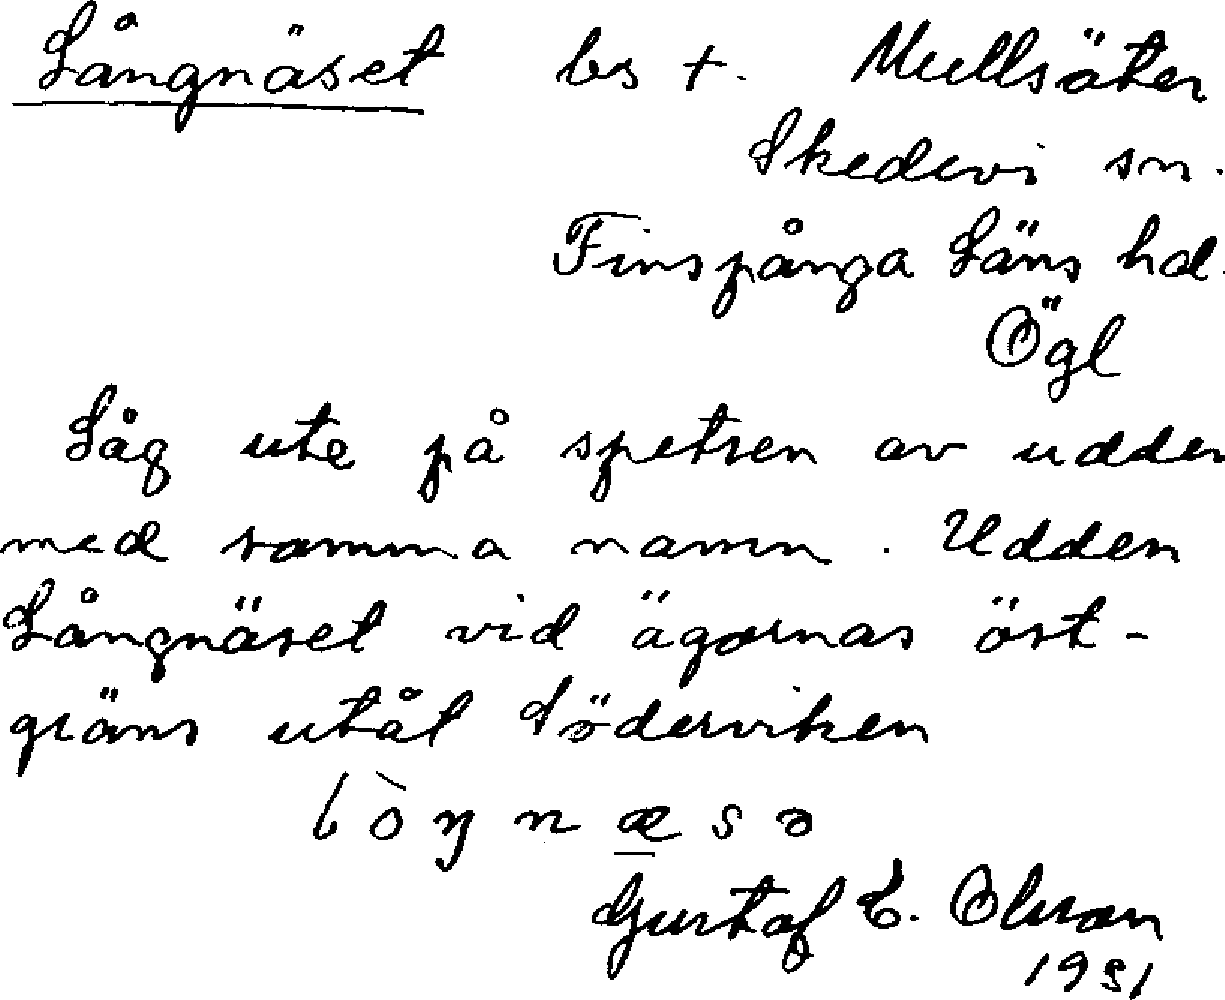 Långnäset bs +. Mullsäter
Skedevi sn.
Finspånga Läns hd.
Ögl
Låg ute på spetsen av udden
med samma namn. Udden
Långnäset vid ägornas öst-
gräns utåt Söderviken
lòŋnæsə
Gustaf E. Olsson
1931